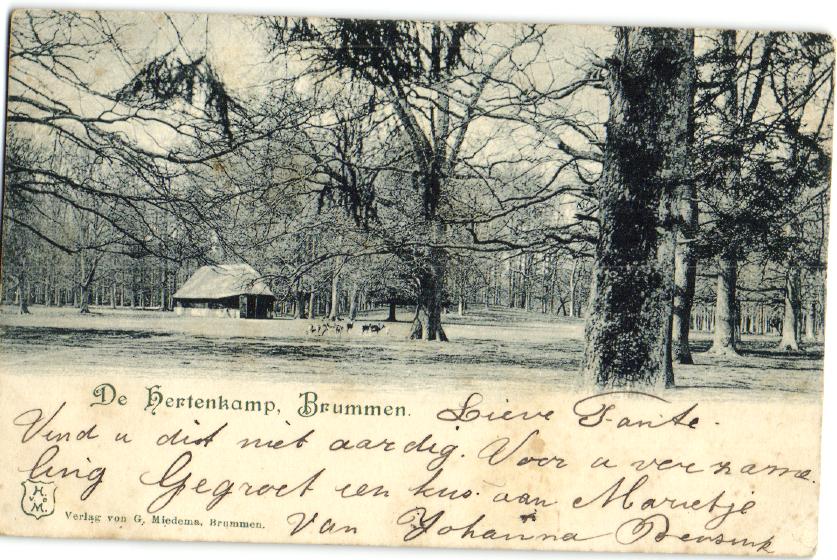 De Hertenkamp, Brummen.
Lieve Tante.
Vind u dist niet aardig. Voor u verzame
ling Gegroet een kus. aan Marietje
H
v o
M.
Verlag von G. Miedema, Brummen.
Van Johanna